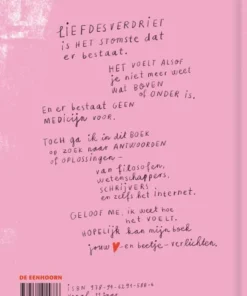 LIEFDESVERDRIET
is HET STOMSTE dat
er bestaat.
HET VOELT ALSOF
je niet meer weet
wat BOVEN
of ONDER is.
En er bestaat GEEN
MEDICIJN VOOR.
TOCH ga ik in dit BOEK
op ZOEK naar ANTWOORDEN
of OPLOSSINGEN –
van filosofen,
wetenschappers,
SCHRIJVERS
en zelfs het internet.
GELOOF ME, ik weet hoe
het VOELT.
HOPELIJK kan mijn boek
jouw ♥ -en beetje- verlichten.
DE EENHOORN